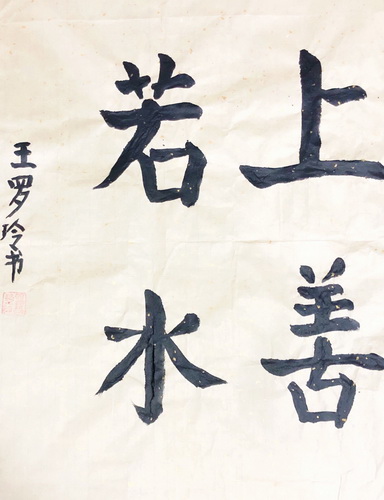 上善
若水
王罗玲书